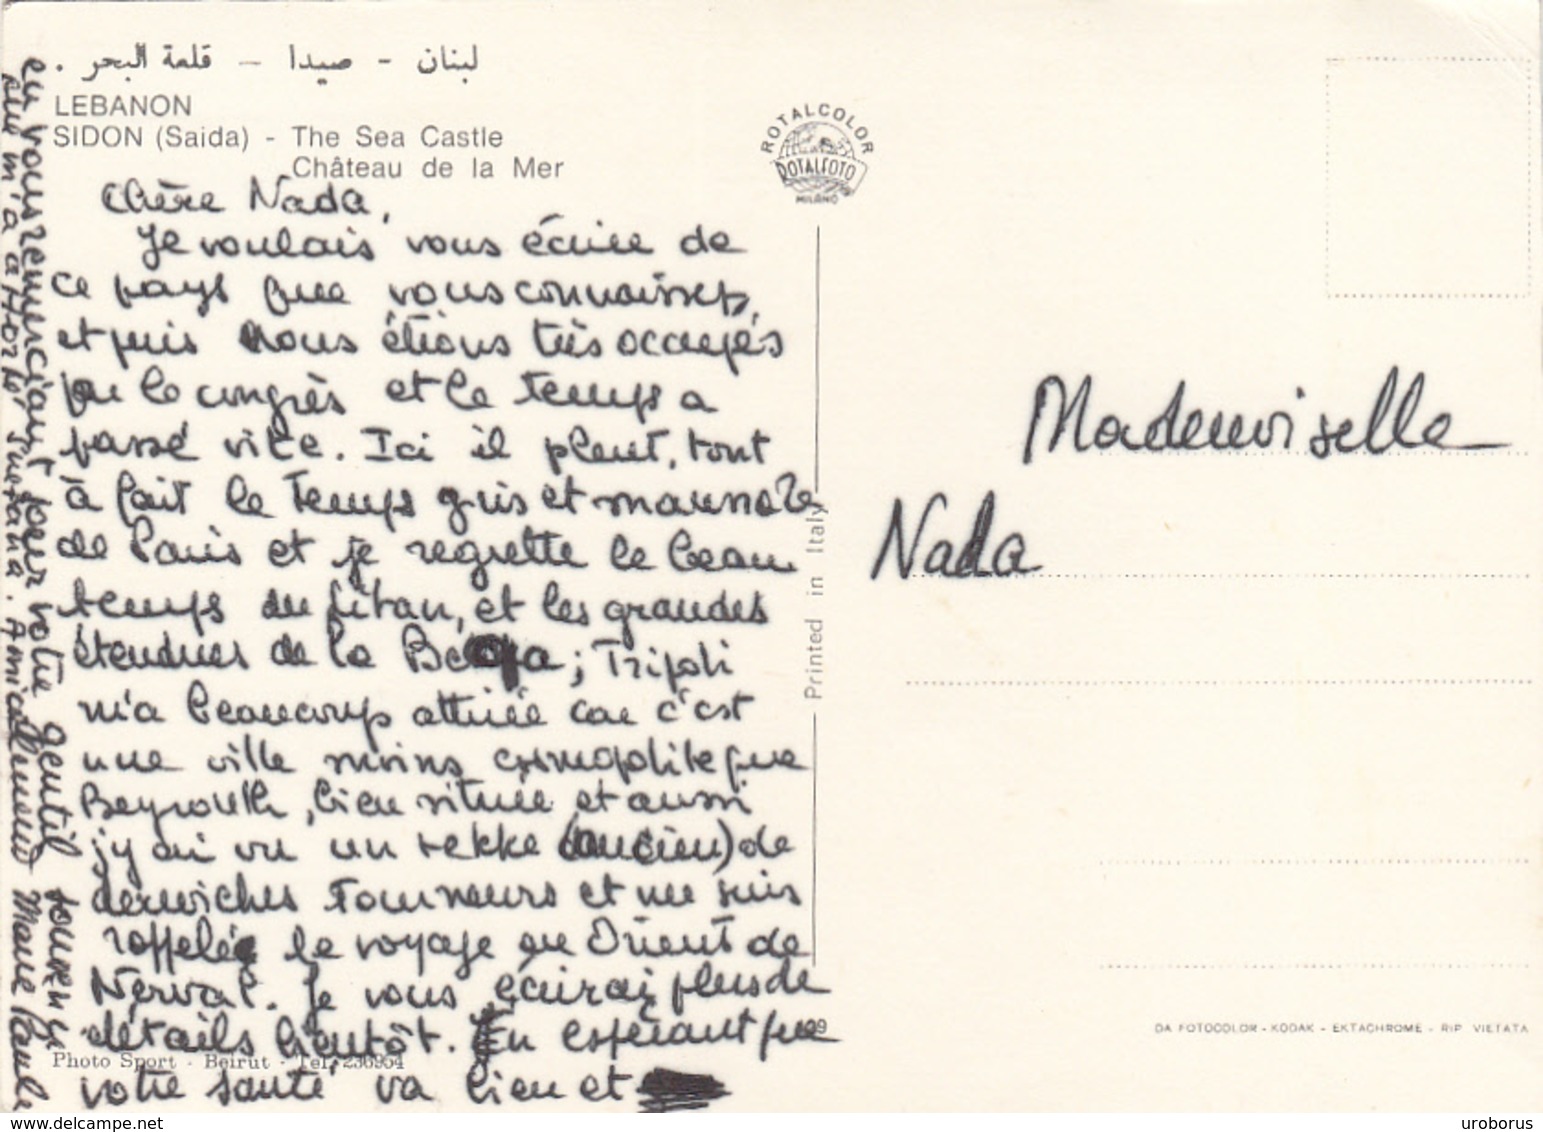 لبنان - صيدا - قلعة البحر .
LEBANON
SIDON (Saida) - The Sea Castle
Château de la Mer
ROTALCOLOR
ROTALFOTO
MILANO
Chère Nada,
Je voulais vous écrire de
ce pays que vous connaissez,
et puis nous étions très occupés
par le congrès et le temps a
passé vite. Ici il pleut, tout
à fait le temps gris et maussade
de Paris et je regrette le beau
temps du Liban, et les grandes
étendues de la Béqa; Tripoli
m'a beaucoup attirée car c'est
une ville moins cosmopolite que
Beyrouth, bien située et aussi
j'y ai vu un tekke (ancien) de
derwiches tourneurs et me suis
rappelée le voyage en Orient de
Nerval. Je vous écrirai plus de
détails bientôt. En espérant que
votre santé va bien et
en vous remerciant pour votre gentil souvenir
que m'a apporté. Amicalement Marie Paule
Mademoiselle
Nada
Printed in Italy
9
DA FOTOCOLOR - KODAK - EKTACHROME - RIP. VIETATA
Photo Sport - Beirut - Tel. 236954
delcampe.net
uroborus